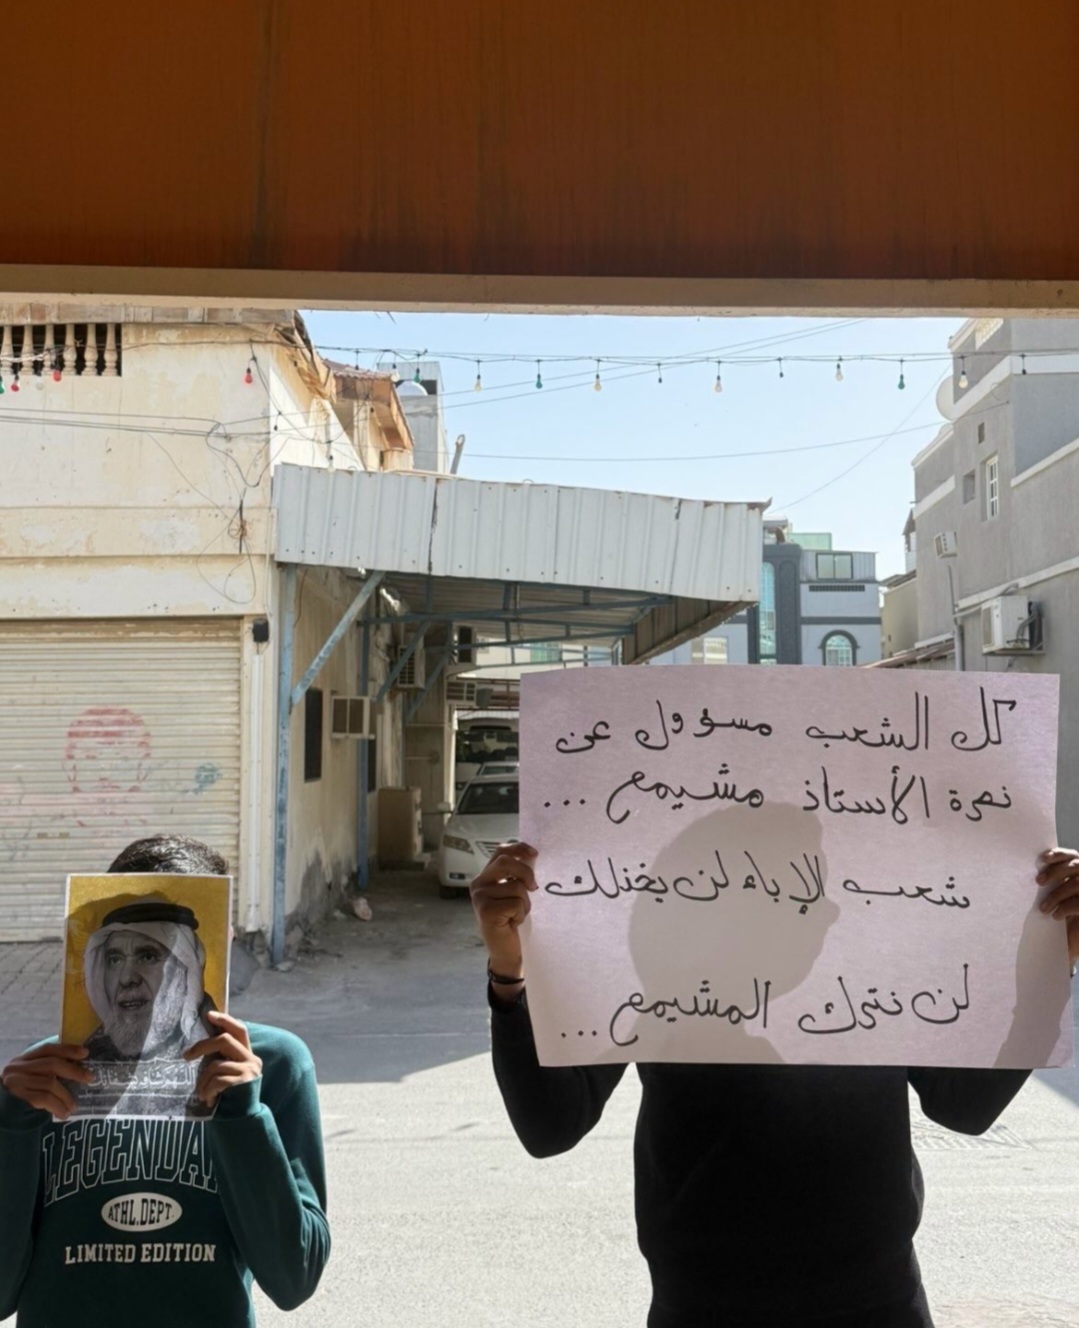 كل الشعب مسؤول عن
نصرة الأستاذ مشيمع ...
شعب الإباء لن يخذلك
لن نترك المشيمع ...
LEGENDA
ATHL.DEPT.
LIMITED EDITION